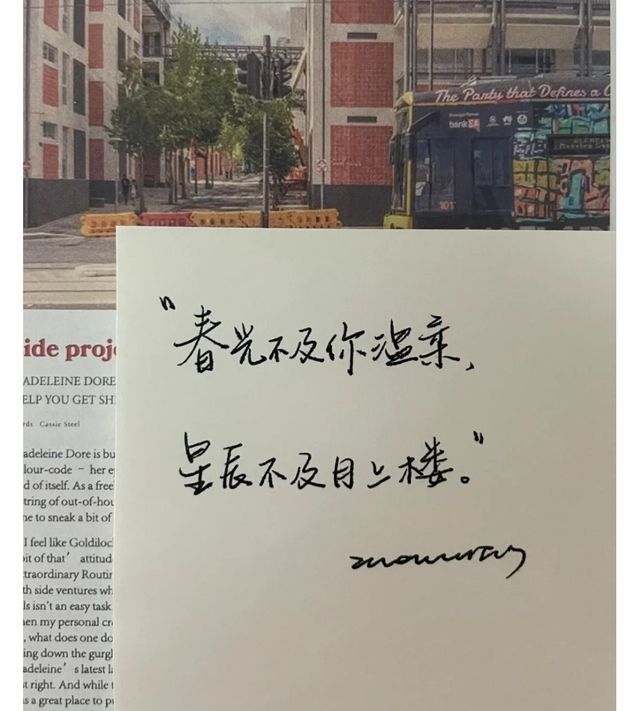 The Party that Defines a
bankSA
101
ide proj
ADELEINE DORE
ELP YOU GET SH
rds Cassie Steel
adeleine Dore is bu
lour-code – her e
d of itself. As a free
tring of out-of-hou
ne to sneak a bit of
I feel like Goldiloc
bit of that' attitud
traordinary Routin
th side ventures wh
ls isn't an easy task
en my personal cr
, what does one do
ing down the gurgl
adeleine's latest la
t right. And while t
s a great place to p
"春光不及你温柔,
星辰不及目上楼。"